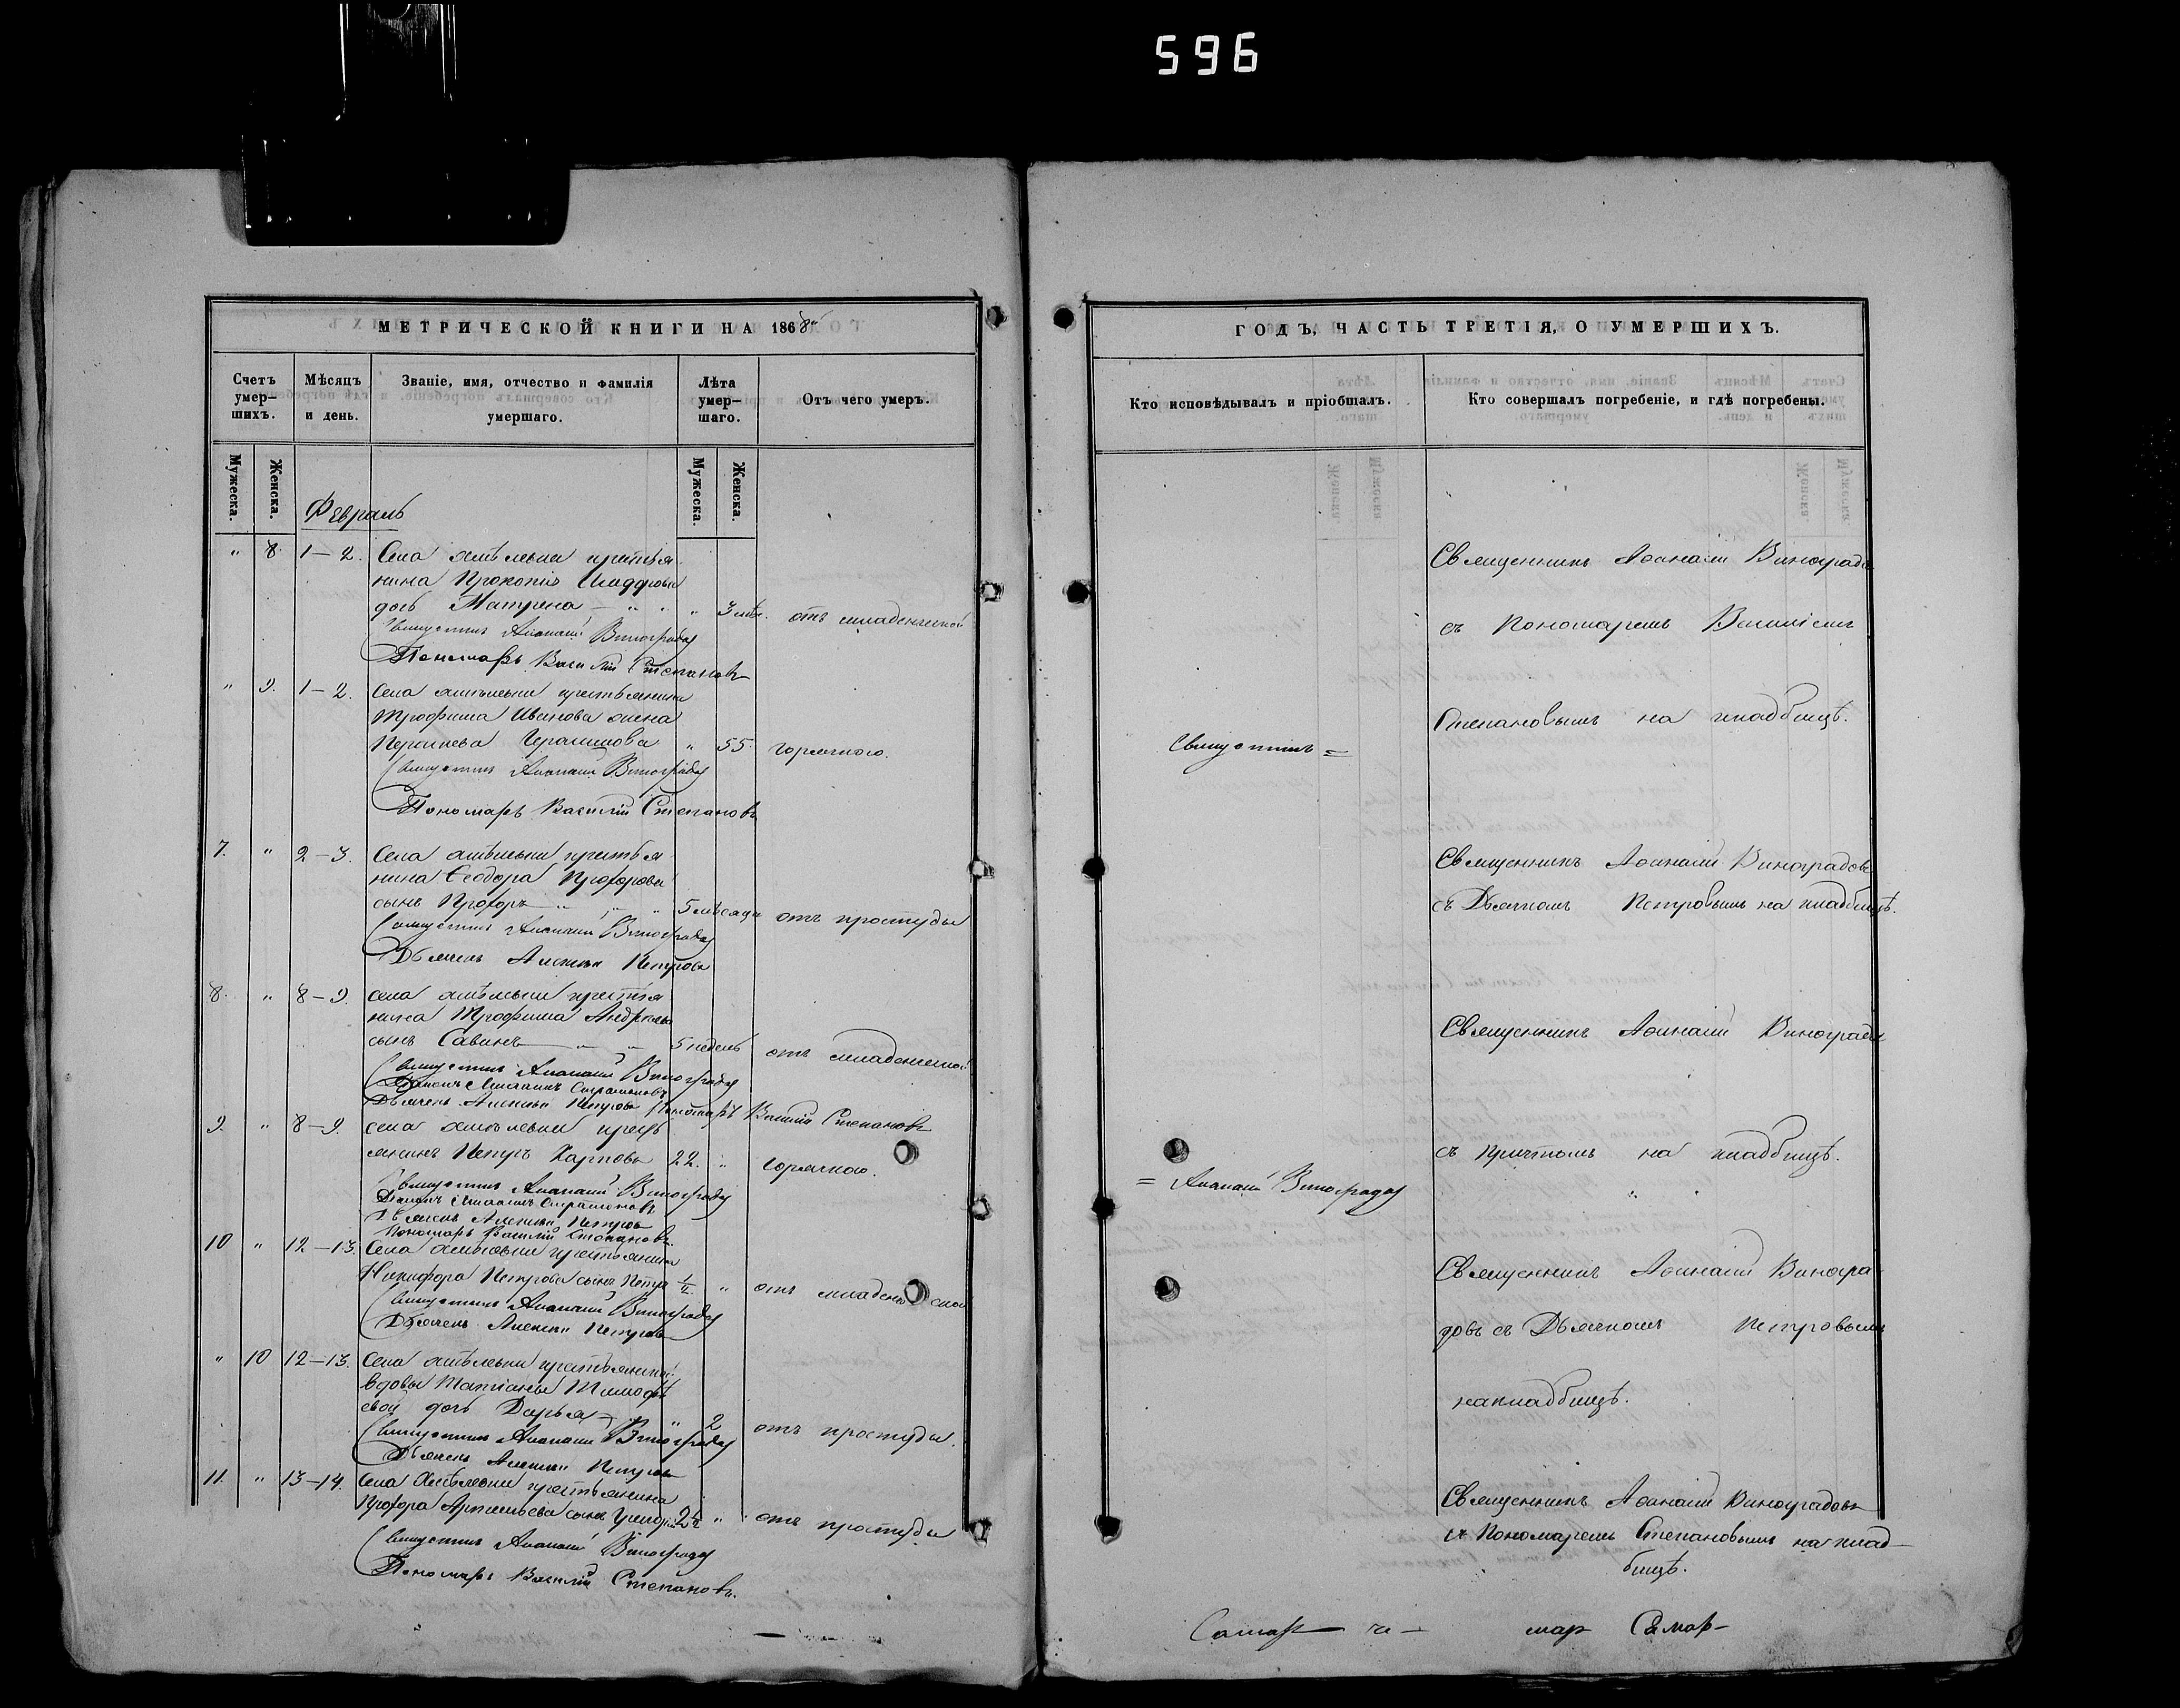 596
МЕТРИЧЕСКОЙ КНИГИ НА 1868й
Счетъ умер-шихъ.
Мѣсяцъ и день.
Званіе, имя, отчество и фамилія умершаго.
Лѣта умер-шаго.
Отъ чего умеръ.
Мужеска.
Женска.
Мужеска.
Женска.
Февраль
" 8. 1–2. Села крестья
нина Прокопія
дочь Матрена – " " " 3 отъ младенческой
Священникъ Аѳанасій Виноградовъ
Пономарь Василій Степановъ
" 9. 1–2. Села крестьянина
Трофима Иванова жена
" 55 горячкою.
Священникъ Аѳанасій Виноградовъ
Пономарь Василій Степановъ
7. " 2–3. Села крестья
нина Ѳеодора Прохорова
сынъ Прохоръ " " " 5 мѣсяцъ отъ простуды
Священникъ Аѳанасій Виноградовъ
Дьячекъ Алексѣй Петровъ
8. " 8–9. села крестья
нина Трофима Андреева
сынъ Савинъ " " 5 недель отъ младенческой
Священникъ Аѳанасій Виноградовъ
Дьячекъ Алексѣй Петровъ Пономарь Василій Степановъ
9. " 8–9. села кресть
янинъ Петръ Карповъ 22. " горячкою.
Священникъ Аѳанасій Виноградовъ
Дьячекъ Алексѣй Петровъ
Пономарь Василій Степановъ.
10 " 12–13. Села крестьянина
Никифора Петрова сынъ Петръ " отъ младенческой
Священникъ Аѳанасій Виноградовъ
Дьячекъ Алексѣй Петровъ
" 10 12–13. Села крестьянской
вдовы Татіаны Тимофѣ
евой дочь Дарья – " " 2 отъ простуды.
Священникъ Аѳанасій Виноградовъ
Дьячекъ Алексѣй Петровъ
11. " 13–14. Села крестьянина
Прохора сынъ Григорій 2½ " отъ простуды
Священникъ Аѳанасій Виноградовъ
Пономарь Василій Степановъ.
ГОДЪ, ЧАСТЬ ТРЕТІЯ, О УМЕРШИХЪ.
Кто исповѣдывалъ и пріобщалъ.
Кто совершалъ погребеніе, и гдѣ погребены.
Священникъ Аѳанасій Виноградовъ
съ Пономаремъ Василіемъ
Степановымъ на кладбищѣ.
Священникъ =
Священникъ Аѳанасій Виноградовъ
съ Дьячкомъ Петровымъ на кладбищѣ.
Священникъ Аѳанасій Виноградовъ
съ причтомъ на кладбищѣ.
= Аѳанасій Виноградовъ
Священникъ Аѳанасій Виногра
довъ съ Дьячкомъ Петровымъ
на кладбищѣ.
Священникъ Аѳанасій Виноградовъ
съ Пономаремъ Степановымъ на клад–
бищѣ.